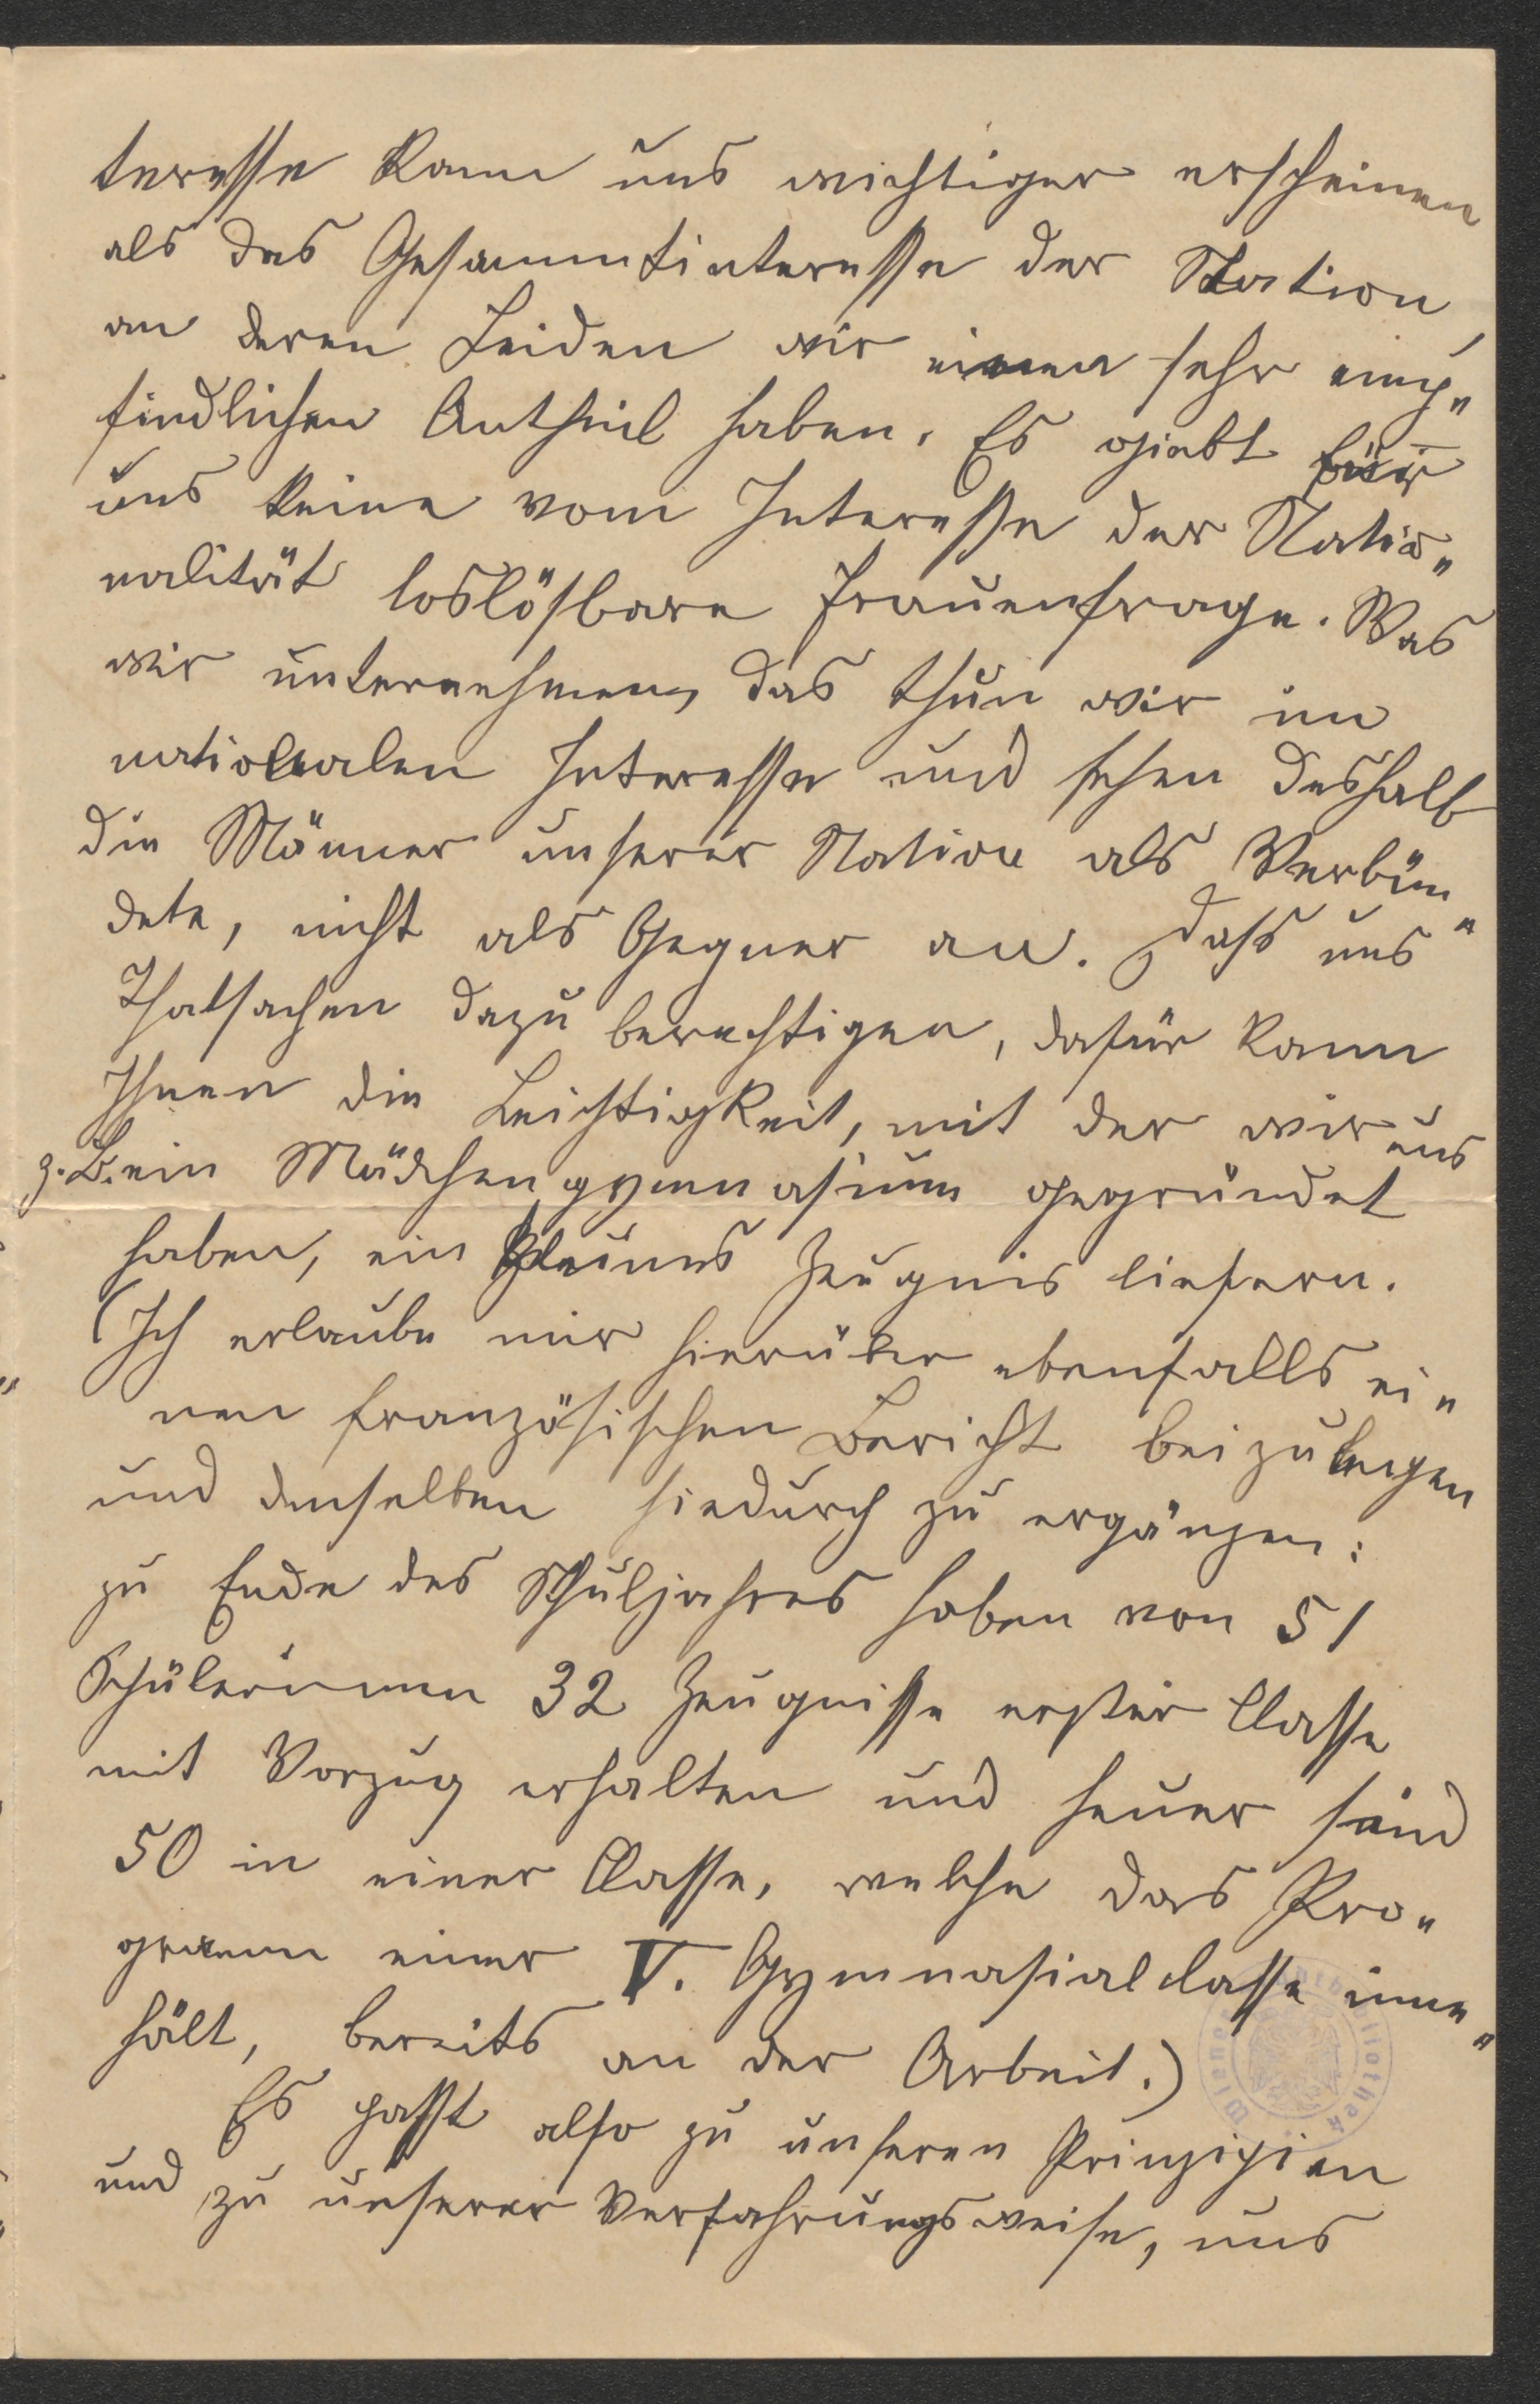 teresse kann uns wichtiger erscheinen
als das Gesammtinteresse der Nation,
an deren Leiden wir einen sehr emp„
findlichen Antheil haben. Es giebt für
uns keine vom Interesse der Natio„
nalität loslösbare Frauenfrage. Was
wir unternehmen, das thun wir im
nationalen Interesse und sehen deshalb
die Männer unserer Nation als Verbün„
dete, nicht als Gegner an. Dass uns
Thatsachen dazu berechtigen, dafür kann
Ihnen die Leichtigkeit, mit der wir uns
z. B. ein Mädchengymnasium gegründet
haben, ein kleines Zeugnis liefern.
(Ich erlaube mir hierüber ebenfalls ei„
nen französischen Bericht beizulegen
und denselben hiedurch zu ergänzen:
zu Ende des Schuljahres haben von 51
Schülerinnen 32 Zeugnisse erster Classe
mit Vorzug erhalten und heuer sind
50 in einer Classe, welche das Pro„
gramm einer V. Gymnasialclasse inne„
hält, bereits an der Arbeit.)
Es passt also zu unseren Prinzipien
und zu unserer Verfahrungsweise, uns